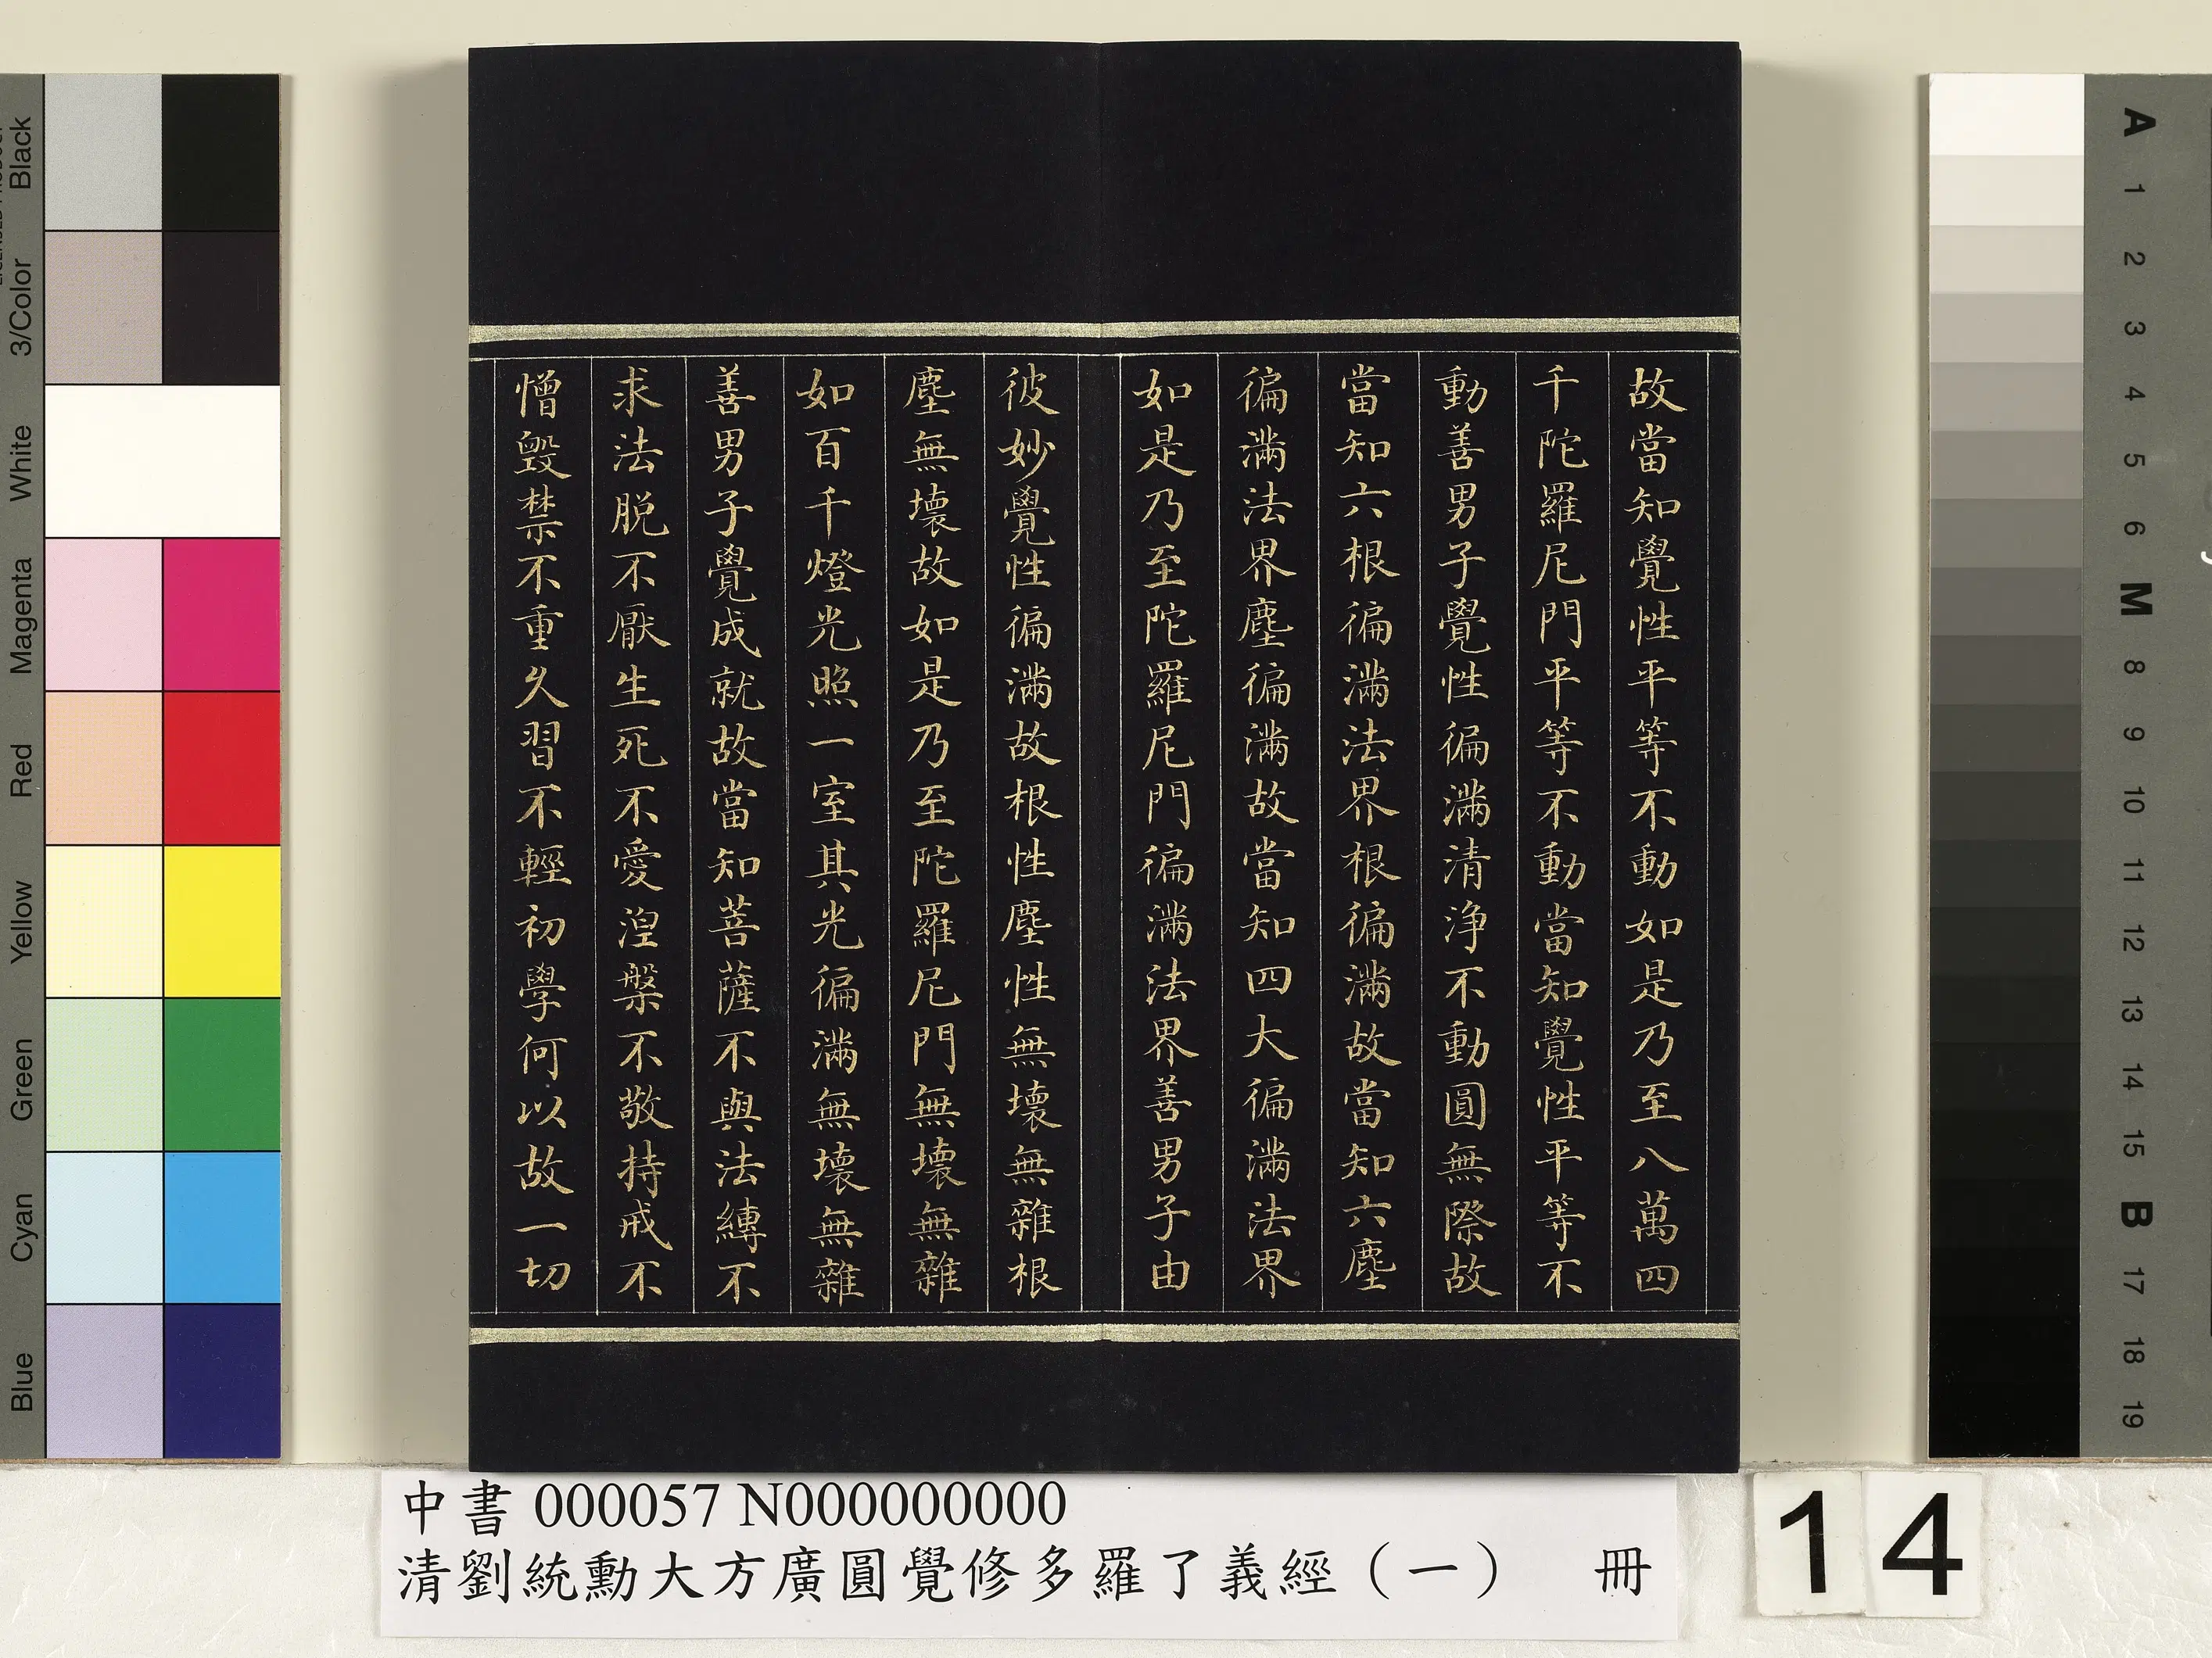 故當知覺性平等不動如是乃至八萬四
千陀羅尼門平等不動當知覺性平等不
動善男子覺性徧滿清淨不動圓無際故
當知六根徧滿法界根徧滿故當知六塵
徧滿法界塵徧滿故當知四大徧滿法界
如是乃至陀羅尼門徧滿法界善男子由
彼妙覺性徧滿故根性塵性無壞無雜根
塵無壞故如是乃至陀羅尼門無壞無雜
如百千燈光照一室其光徧滿無壞無雜
善男子覺成就故當知菩薩不與法縛不
求法脱不厭生死不愛湼槃不敬持戒不
憎毀禁不重久習不輕初學何以故一切
中書 000057 N000000000
清劉統勳大方廣圓覺修多羅了義經（一） 冊
14
Black
3/Color
White
Magenta
Red
Yellow
Green
Cyan
Blue
A
1
2
3
4
5
6
M
8
9
10
11
12
13
14
15
B
17
18
19